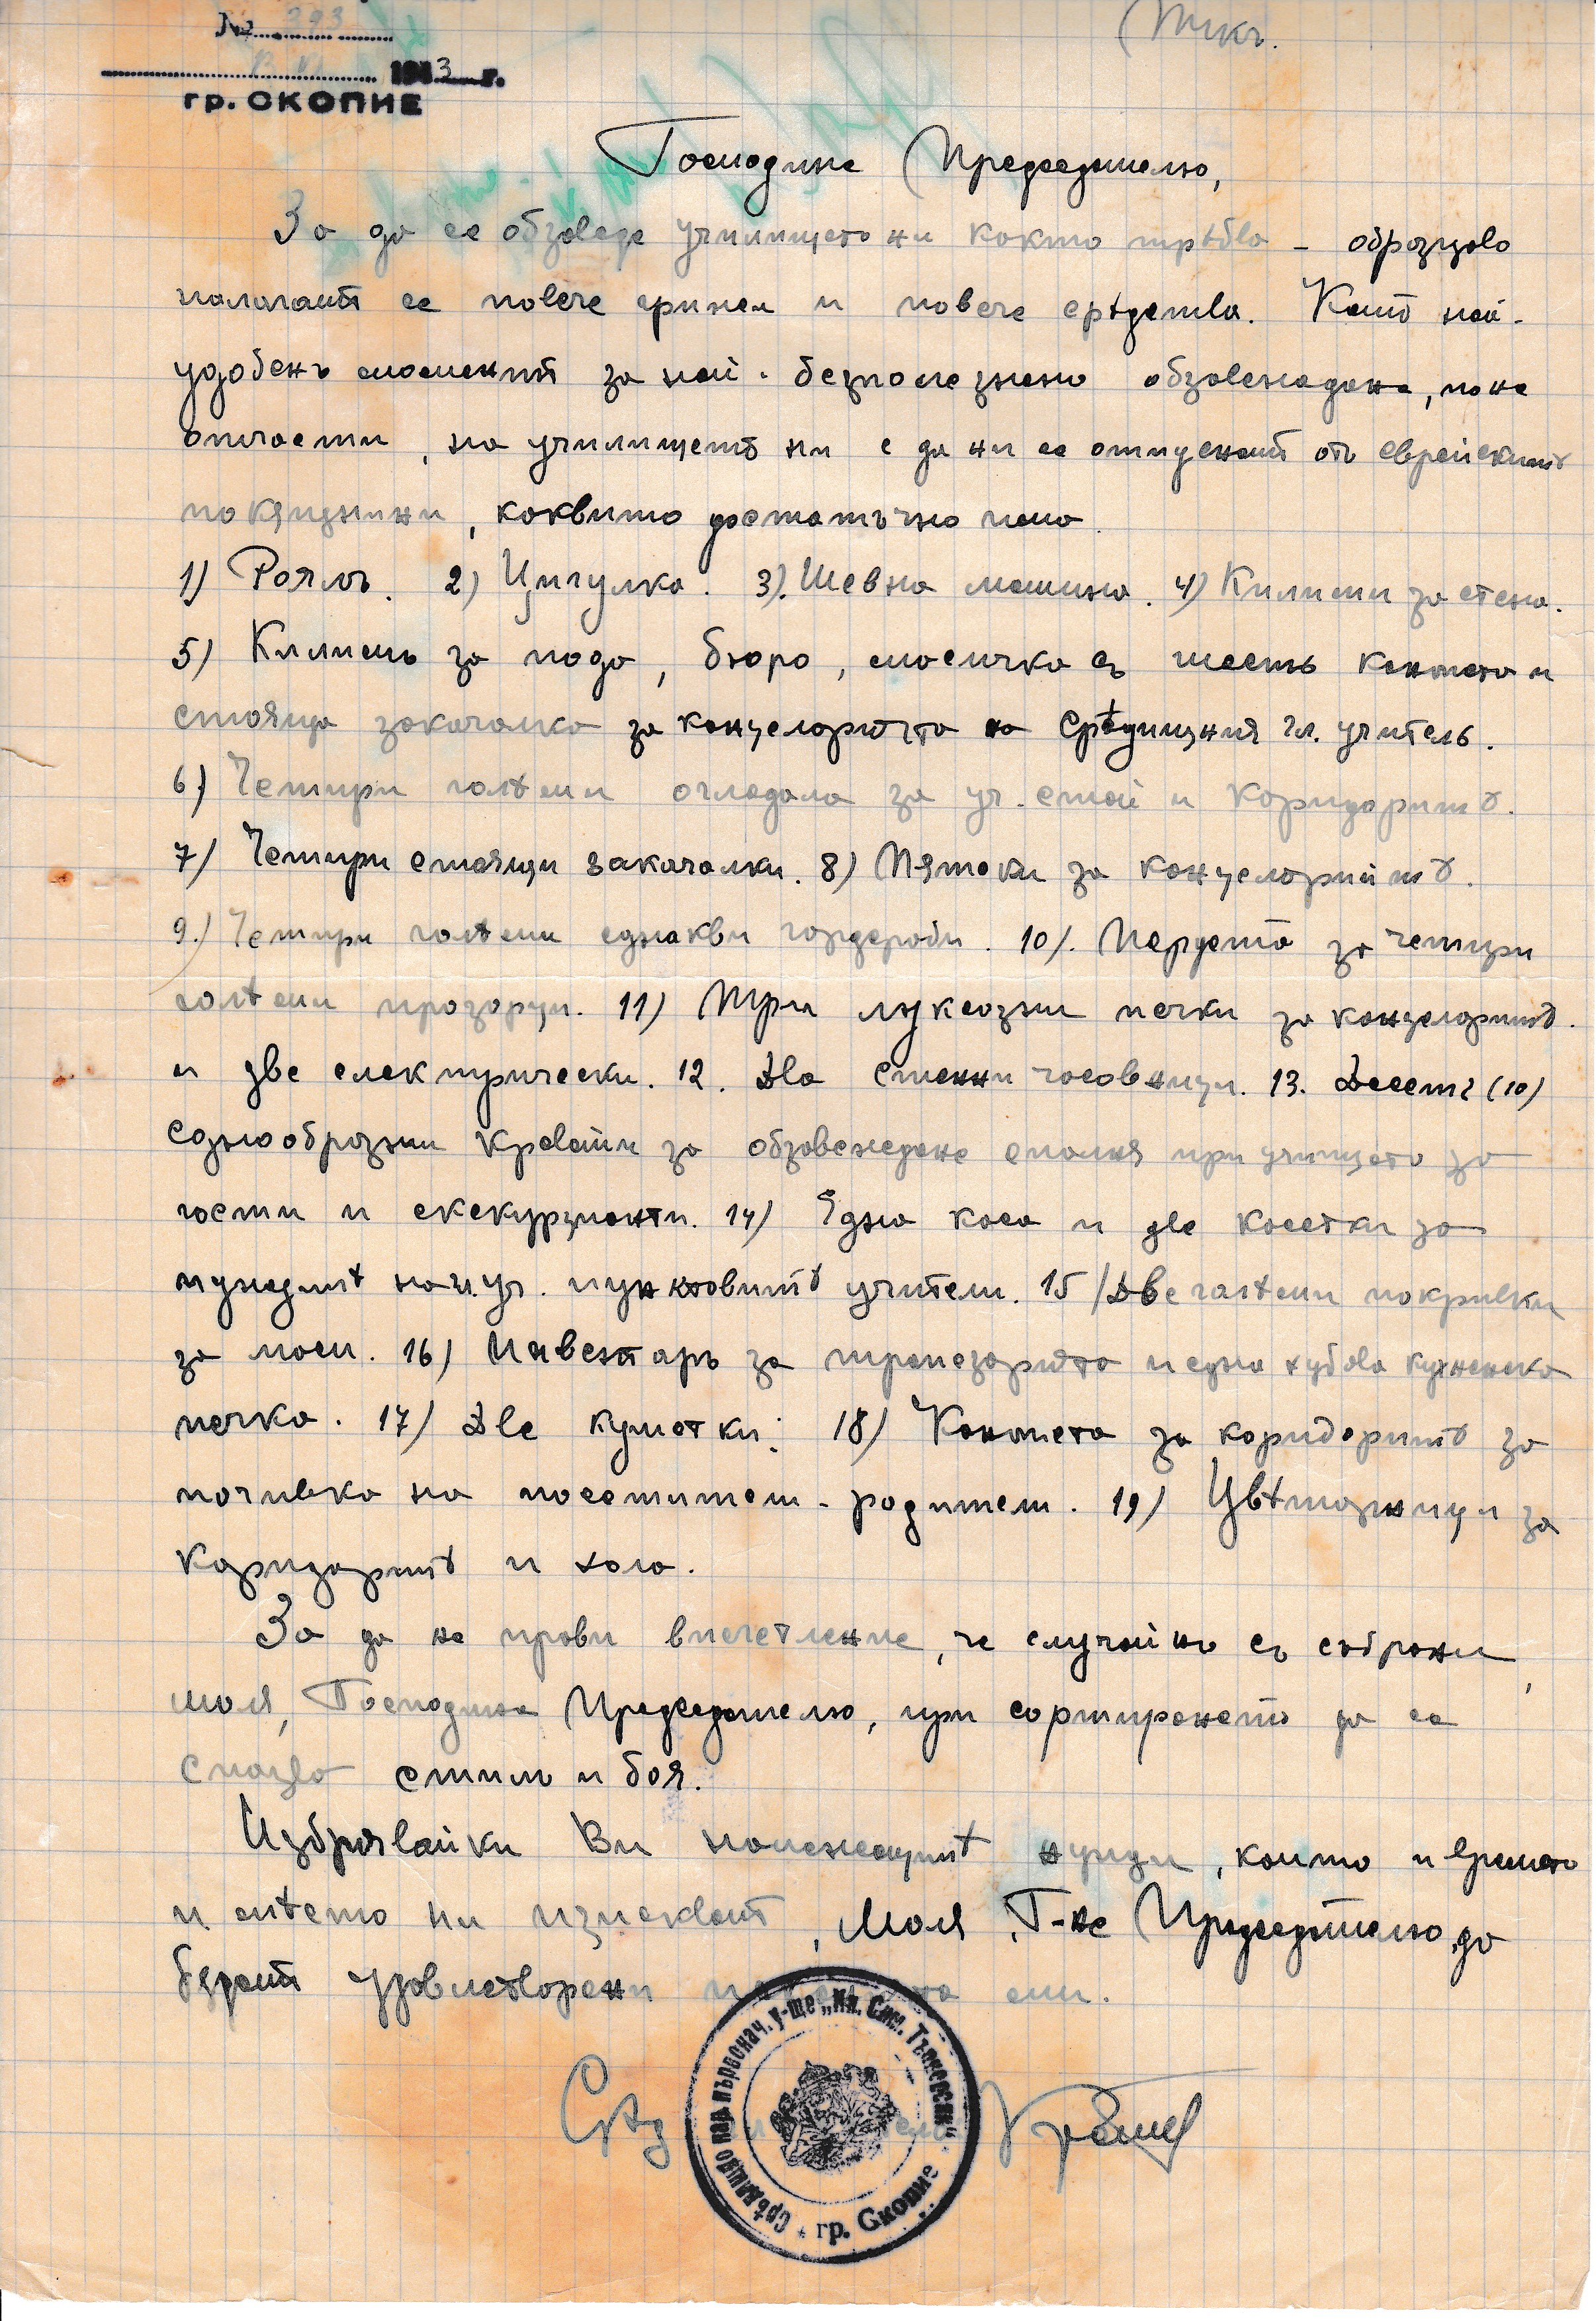 № 393
1943 г.
гр. СКОПИЕ
Господине Председателю,
За да се обзаведе училището ни както трѣбва - образцово
налагатъ се повече грижи и повече срѣдства. Като най-
удобенъ моментъ за най-безполезнено обзавеждане, поне
отчасти, на училището ни е да ни се отпуснатъ отъ еврейскитѣ
покѫднини, каквито достатъчно има.
1) Роялъ. 2) Цигулка. 3). Шевна машина. 4) Килими за стена.
5) Килимъ за пода, бюро, масичка съ шесть канапета и
стояща закачалка за канцеларията на Срѣдищния гл. учитель.
6) Четири голѣми огледала за уч. стай и коридоритѣ.
7) Четири стоящи закачалки. 8) Пѫтеки за канцеларийтѣ.
9.) Четири голѣми еднакви гардероби. 10). Пердета за четири
голѣми прозорци. 11) Три луксозни печки за канцелариитѣ.
и две електрически. 12. Два стенни часовници. 13. Десеть (10)
еднообразни кревати за обзавеждане спалня при учището за
гости и екскурзианти. 14) Една каса и две касетки за
нуждитѣ на н. уч. пунктовитѣ учители. 15/ Две голѣми покривки
за маси. 16) Инвентаръ за трапезарията и една хубава кухненска
печка. 17) Две кушетки. 18) Канапета за коридоритѣ за
почивка на посетители-родители. 19) Цвѣтарници за
коридоритѣ и хола.
За да не прави впечатление, че случайно сѫ събрани,
моля, Господине Председателю, при сортирането да се
спазва стилъ и боя.
Изброявайки Ви належащитѣ нужди, които и времето
и мѣстото ни изискватъ, моля, Г-не Председателю, да
бѫдатъ удовлетворени исканията ми.
Срѣд
Срѣдищно нар. първонач. у-ще „Ил. Сим. Тъпчевски"
гр. Скопие